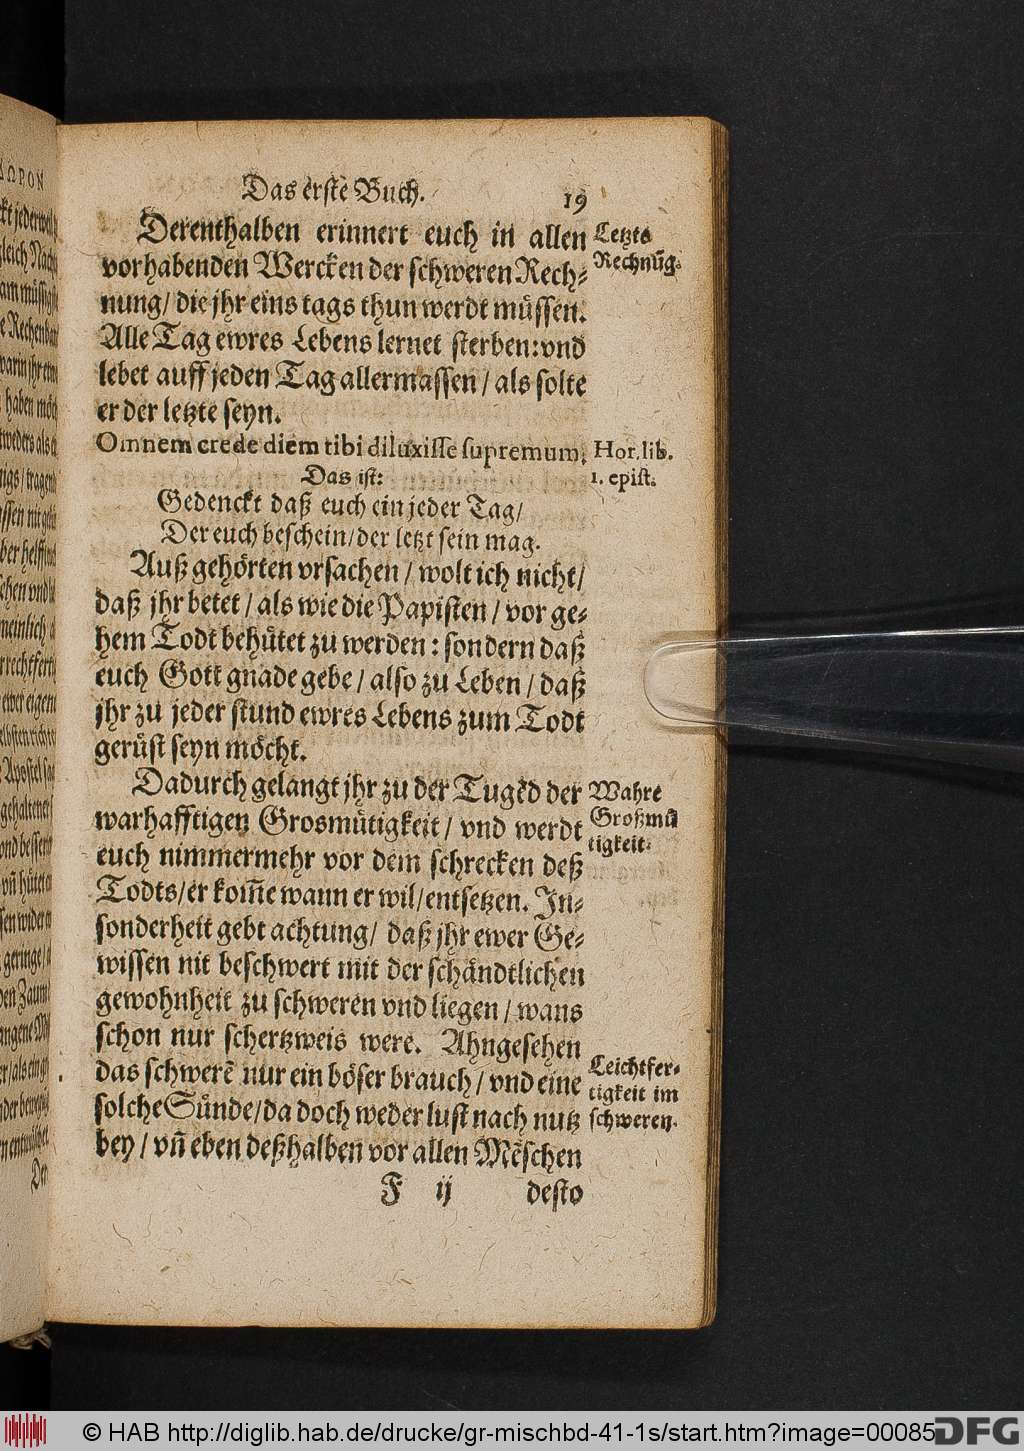 Das erste Buch. 19
Derenthalben erinnert euch in allen
vorhabenden Wercken der schweren Rech⸗
nung / die jhr eins tags thun werdt müssen.
Alle Tag ewres Lebens lernet sterben: vnd
lebet auff jeden Tag allermassen / als solte
er der letzte seyn.
Letzte
Rechnũg.
Omnem crede diem tibi diluxisse supremum.
Hor. lib.
1. epist.
Das ist:
Gedenckt daß euch ein jeder Tag /
Der euch beschein / der letzt sein mag.
Auß gehörten vrsachen / wolt ich nicht /
daß jhr betet / als wie die Papisten / vor ge⸗
hem Todt behütet zu werden : sondern daß
euch Gott gnade gebe / also zu Leben / daß
jhr zu jeder stund ewres Lebens zum Todt
gerüst seyn möcht.
Dadurch gelangt jhr zu der Tugẽd der
warhafftigen Grosmütigkeit / vnd werdt
euch nimmermehr vor dem schrecken deß
Todts / er kom̃e wann er wil / entsetzen. In⸗
sonderheit gebt achtung / daß jhr ewer Ge⸗
wissen nit beschwert mit der schändtlichen
gewohnheit zu schweren vnd liegen / wans
schon nur schertzweis were. Ahngesehen
das schwerẽ nur ein böser brauch / vnd eine
solche Sünde / da doch weder lust nach nutz
bey / vñ eben deßhalben vor allen Mẽschen
Wahre
Großmü
tigkeit.
Leichtfer⸗
tigkeit im
schweren.
F ij desto
© HAB http://diglib.hab.de/drucke/gr-mischbd-41-1s/start.htm?image=00085
DFG